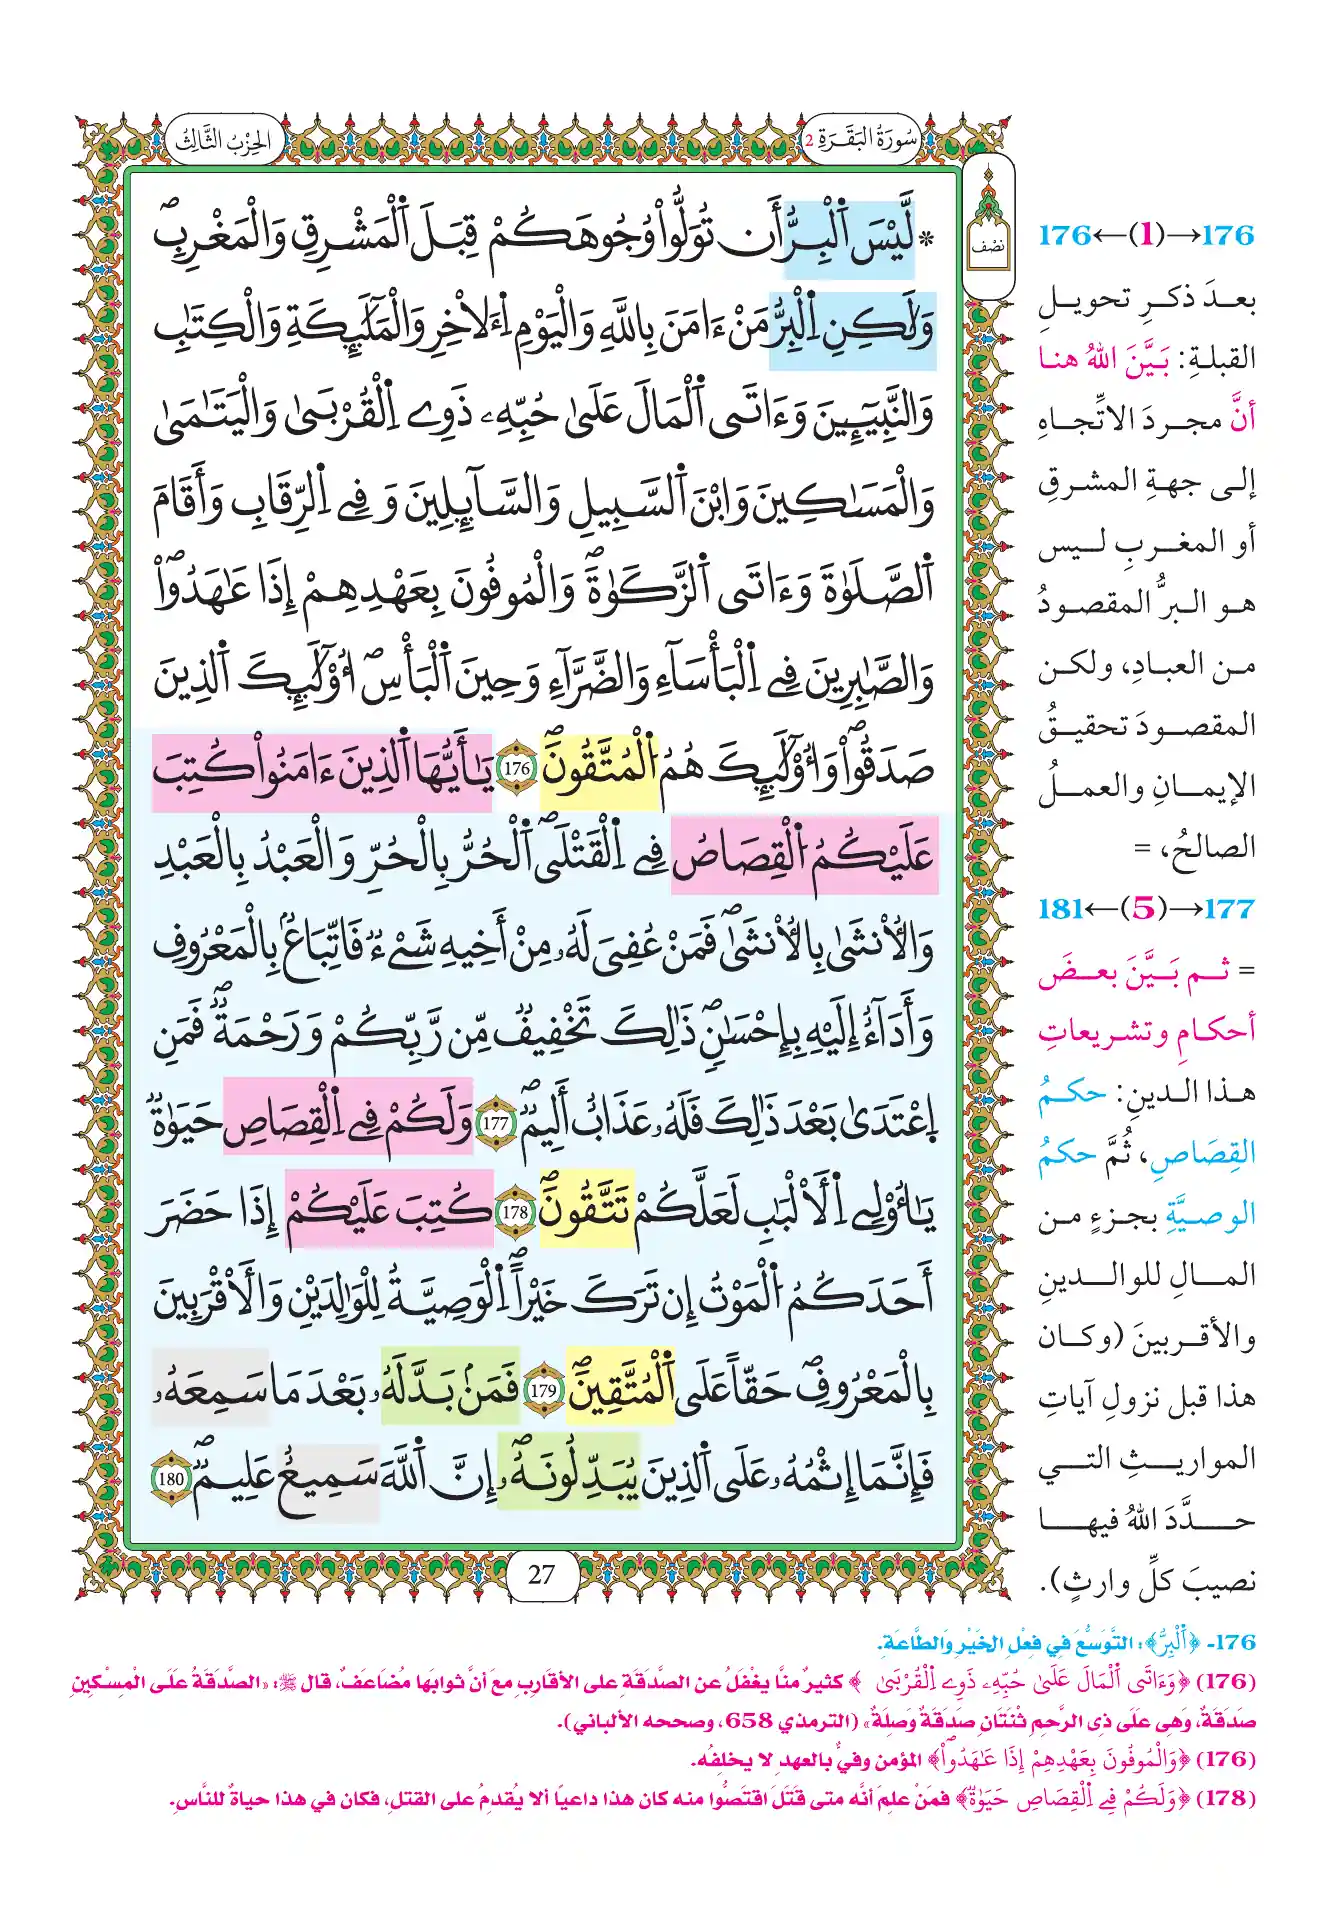 سُورَةُ البَقَرَةِ 2
الحِزْبُ الثَّالِثُ
نصف
* لَّيْسَ اَ۬لْبِرُّ أَن تُوَلُّواْ وُجُوهَكُمْ قِبَلَ اَ۬لْمَشْرِقِ وَالْمَغْرِبِۖ
وَلَٰكِنِ اِ۬لْبِرُّ مَنْ ءَامَنَ بِاللَّهِ وَالْيَوْمِ اِ۬لَاخِرِ وَالْمَلَٰٓئِكَةِ وَالْكِتَٰبِ
وَالنَّبِيٓـِٕينَ وَءَاتَى اَ۬لْمَالَ عَلَىٰ حُبِّهِۦ ذَوِے اِ۬لْقُرْبَىٰ وَالْيَتَٰمَىٰ
وَالْمَسَٰكِينَ وَابْنَ اَ۬لسَّبِيلِ وَالسَّآئِلِينَ وَفِے اِ۬لرِّقَابِ وَأَقَامَ
اَ۬لصَّلَوٰةَ وَءَاتَى اَ۬لزَّكَوٰةَۖ وَالْمُوفُونَ بِعَهْدِهِمْ إِذَا عَٰهَدُواْۖ
وَالصَّٰبِرِينَ فِے اِ۬لْبَأْسَآءِ وَالضَّرَّآءِ وَحِينَ اَ۬لْبَأْسِۖ أُوْلَٰٓئِكَ اَ۬لذِينَ
صَدَقُواْۖ وَأُوْلَٰٓئِكَ هُمُ اُ۬لْمُتَّقُونَۖ 176 يَٰٓأَيُّهَا اَ۬لذِينَ ءَامَنُواْ كُتِبَ
عَلَيْكُمُ اُ۬لْقِصَاصُ فِے اِ۬لْقَتْلَىۖ اَ۬لْحُرُّ بِالْحُرِّ وَالْعَبْدُ بِالْعَبْدِ
وَالُانثَىٰ بِالُانثَىٰۖ فَمَنْ عُفِيَ لَهُۥ مِنْ أَخِيهِ شَےْءٞ فَاتِّبَاعُۢ بِالْمَعْرُوفِ
وَأَدَآءٌ إِلَيْهِ بِإِحْسَٰنٖۖ ذَٰلِكَ تَخْفِيفٞ مِّن رَّبِّكُمْ وَرَحْمَةٞۖ فَمَنِ
اِ۪عْتَدَىٰ بَعْدَ ذَٰلِكَ فَلَهُۥ عَذَابٌ أَلِيمٞۖ 177 وَلَكُمْ فِے اِ۬لْقِصَاصِ حَيَوٰةٞ
يَٰٓأُوْلِے اِ۬لَالْبَٰبِ لَعَلَّكُمْ تَتَّقُونَۖ 178 كُتِبَ عَلَيْكُمْ إِذَا حَضَرَ
أَحَدَكُمُ اُ۬لْمَوْتُ إِن تَرَكَ خَيْراًۖ اِ۬لْوَصِيَّةُ لِلْوَٰلِدَيْنِ وَالَاقْرَبِينَ
بِالْمَعْرُوفِۖ حَقّاً عَلَى اَ۬لْمُتَّقِينَۖ 179 فَمَنۢ بَدَّلَهُۥ بَعْدَ مَا سَمِعَهُۥ
فَإِنَّمَا إِثْمُهُۥ عَلَى اَ۬لذِينَ يُبَدِّلُونَهُۥۖ إِنَّ اَ۬للَّهَ سَمِيعٌ عَلِيمٞۖ 180
27
176←(1)→176
بعدَ ذكرِ تحويلِ
القبلةِ: بَيَّنَ اللهُ هنا
أنَّ مجردَ الاتِّجاهِ
إلى جهةِ المشرقِ
أو المغربِ ليس
هو البرُّ المقصودُ
من العبادِ، ولكن
المقصودَ تحقيقُ
الإيمانِ والعملُ
الصالحُ، =
177←(5)→181
= ثم بَيَّنَ بعضَ
أحكامِ وتشريعاتِ
هذا الدينِ: حكمُ
القِصَاصِ، ثُمَّ حكمُ
الوصيَّةِ بجزءٍ من
المالِ للوالدينِ
والأقربينَ (وكان
هذا قبل نزولِ آياتِ
المواريثِ التي
حدَّدَ اللهُ فيها
نصيبَ كلِّ وارثٍ).
176- ﴿اَ۬لْبِرُّ﴾: التَّوَسُّعَ فِي فِعْلِ الخَيْرِ وَالطَّاعَةِ.
(176) ﴿وَءَاتَى اَ۬لْمَالَ عَلَىٰ حُبِّهِۦ ذَوِے اِ۬لْقُرْبَىٰ﴾ كثيرٌ منَّا يغْفَلُ عن الصَّدَقةِ على الأقاربِ معَ أنَّ ثوابَها مُضَاعَفٌ، قال ﷺ: «الصَّدَقَةُ عَلَى الْمِسْكِينِ
صَدَقَةٌ، وَهِيَ عَلَى ذِي الرَّحِمِ ثْنَتَانِ صَدَقَةٌ وَصِلَةٌ» (الترمذي 658، وصححه الألباني).
(176) ﴿وَالْمُوفُونَ بِعَهْدِهِمْ إِذَا عَٰهَدُواْۖ﴾ المؤمن وفيٌّ بالعهدِ لا يخلفُه.
(178) ﴿وَلَكُمْ فِے اِ۬لْقِصَاصِ حَيَوٰةٞ﴾ فمَنْ علِمَ أنَّه متى قَتَلَ اقتَصُّوا منه كان هذا داعياً ألا يُقدمُ على القتلِ، فكان في هذا حياةٌ للنَّاسِ.